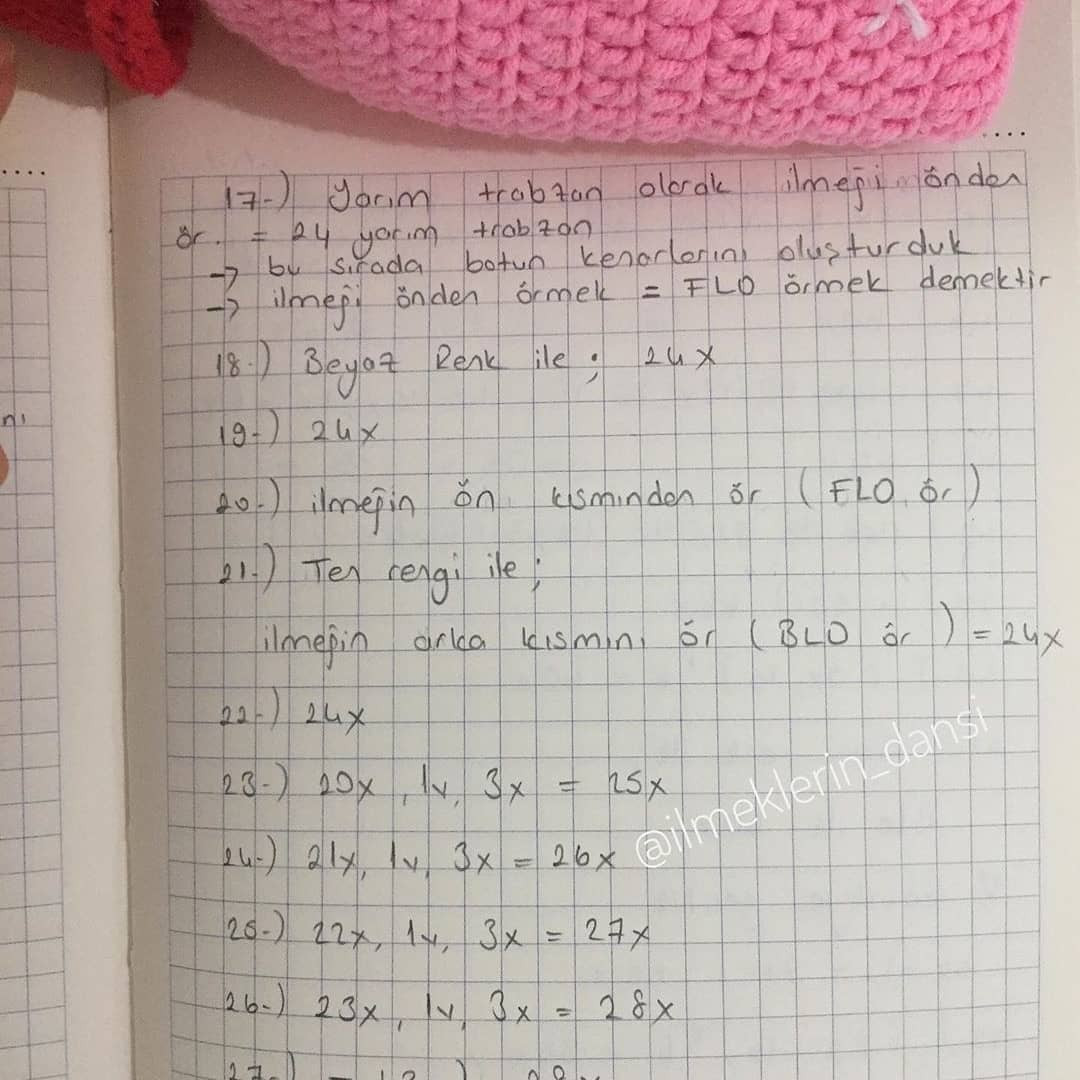 17-) Yarım trabzan olarak ilmeği önden
ör. = 24 yarım trabzan
→ bu sırada botun kenarlarını oluşturduk
→ ilmeği önden örmek = FLO örmek demektir
18-) Beyaz Renk ile ; 24x
19-) 24x
20-) ilmeğin ön kısmından ör ( FLO ör )
21-) Ten rengi ile ;
ilmeğin arka kısmını ör ( BLO ör ) = 24x
22-) 24x
23-) 20x , 1v, 3x = 25x
24-) 21x, 1v, 3x = 26x
25-) 22x, 1v, 3x = 27x
26-) 23x, 1v, 3x = 28x
27-)
@ilmeklerin_dansi